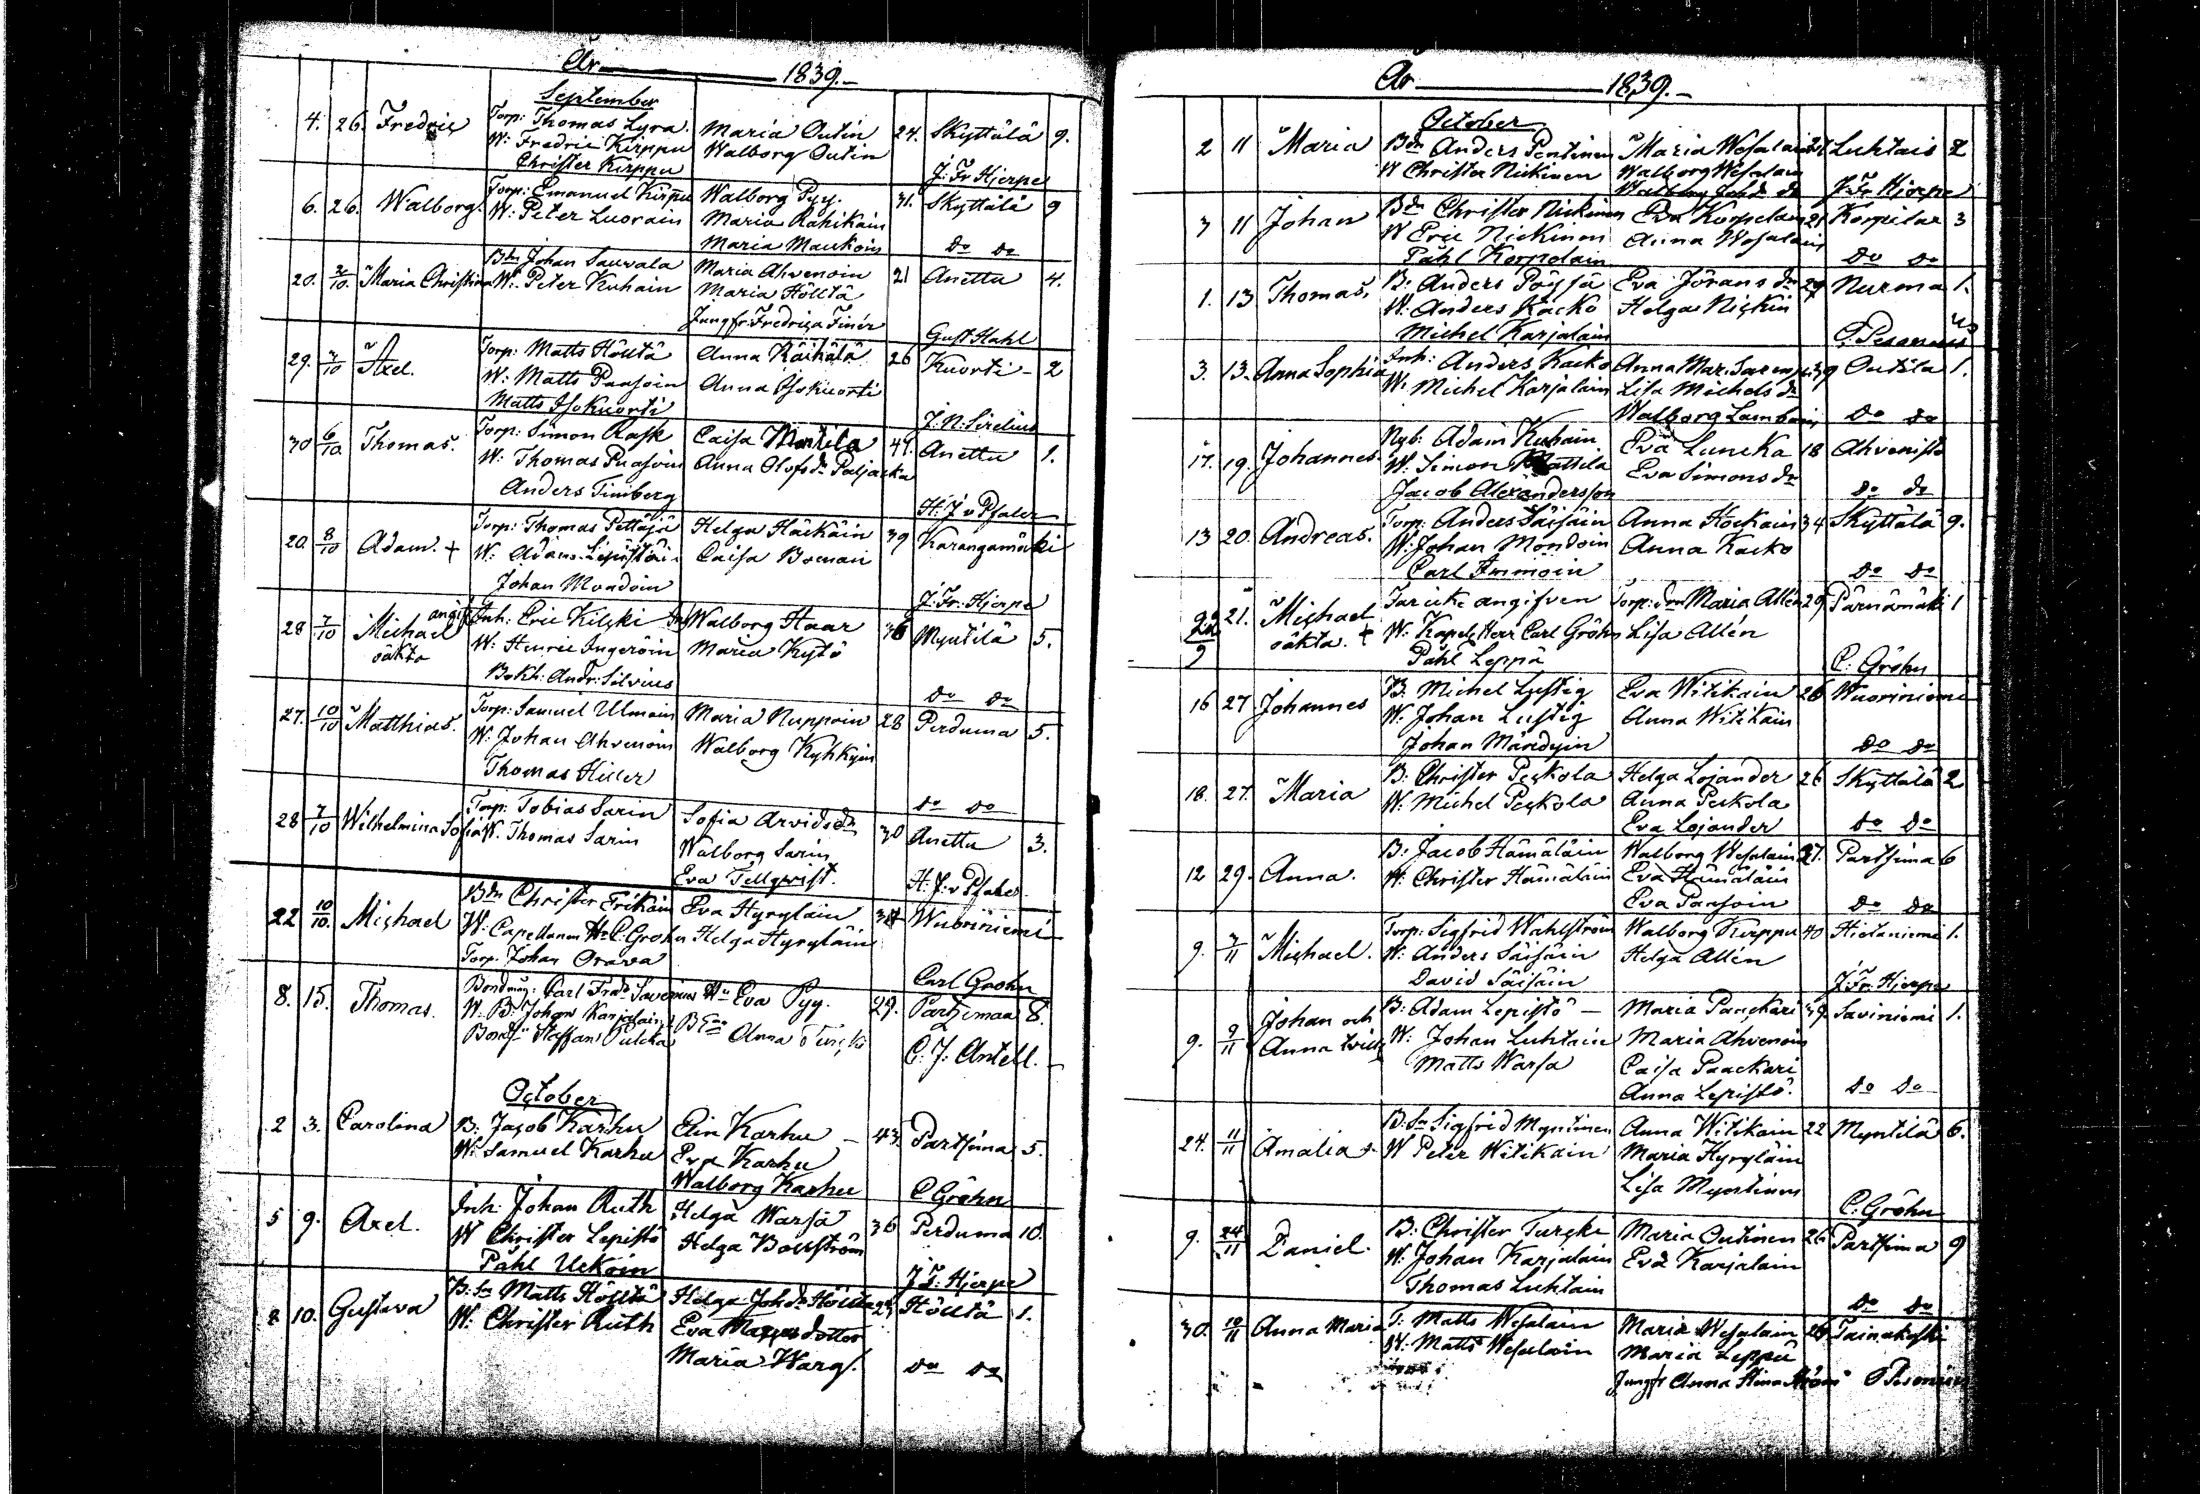 År 1839.
September
4. 26. Fredric Torp: Thomas Lyra. Maria Outin 24. Skyttälä 9.
W: Fredric Kirppu Walborg Outin
Christer Kirppu J: Fr Hjerpe
6. 26. Walborg. Torp: Emanuel Kirppu Walborg Pyy. 31. Skyttälä 9
W: Peter Luorain Maria Rahikain
Maria Maukoin do do
20. 2/10. Maria Christina Bdn Johan Saurala Maria Ahvenoin 21 Anettu 4.
W: Peter Kuhain Maria Hölltä
Jungfr: Fredrica Finér Gust Stahl
29. 3/10 Axel. Torp: Matts Hölltä Anna Räihälä 26 Kuorti - 2
W: Matts Paasoin Anna Isokuorti
Matts Isokuorti J: N: Sirelius
30 6/10. Thomas. Torp: Simon Rask Caisa 44. Anettu 1.
W: Thomas Puasoin Anna Olofsdr Paljacka
Anders Timberg H: J v Pfaler
20. 8/10 Adam. + Torp: Thomas Pettäjä Helga Häckäin 39 Karangamäki
W: Adam Lepistöin Caisa Boman
Johan Mondoin J: Fr: Hjerpe
28 7/10 Michael angif Inh: Eric Kilski Walborg Haar 36 Myntilä 5.
oäkta W: Henric Ingeröin Maria Kytö
Bokh: Andr: Silvius do do
27. 10/10 Matthias. Torp: Samuel Ulmain Maria Nuppoin 28 Perduma 5.
W: Johan Ahvenoin Walborg Kyhkyin
Thomas Hiller do do
28 7/10 Wilhelmina Sofia Torp: Tobias Sarin Sofia Arvidsdr 30 Anettu 3.
W. Thomas Sarin Walborg Sarin
Eva Tellqvist. H. J. v Pfaler
22 10/10. Michael Bdn Christer Erikäin Eva Hyryläin 34 Wuoriniemi
W: Capellanen Hr C: Grohn Helga Hyryläin
Torp. Johan Orava Carl Grohn
8. 15. Thomas. Bondmåg: Carl Fredr Savenius Hu Eva Pyy. 29. Partzimaa 8.
W. B: Johans Karjalain Anna Turcki
Staffan Pulcka C. J. Antell.
October
2 3. Carolina B: Jacob Karhu Elin Karhu - 43. Partsima 5.
W: Samuel Karhu Eva Karhu
Walborg Karhu C Gröhn
5 9. Axel. Inh: Johan Ruth Helga Warsa 36 Perduma 10.
W Christer Lepistö Helga Bollström
Påhl Uckoin J F: Hjerpe
8 10. Gustava B: Sn Matts Hölltä Helga Johdr Hölltä 23 Hölltä 1.
W: Christer Ruth Eva dotter
Maria Warg. do do
År 1839.
October
2 11 Maria Bdn Anders Pentinen Maria Wesalain 21 Luhtais 2
W Christer Nickinen Walborg Wesalain
J: Fr: Hjerpe
3 11 Johan Bdn Christer Nickinen Eva Korpelain 21 Korpilax 3
W Eric Nickinen Anna Wesalain
Påhl Korpelain do do
1. 13 Thomas, B: Anders Pöysä Eva Jöransdr 29 Nurma 1.
W: Anders Kacko Helga Nickin
Michel Karjalain C. Pesonius
3. 13. Anna Sophia Inh: Anders Kacko Anna Mar. 39 Outila 1.
W. Michel Karjalain Lisa Michelsdr
Walborg Lambain do do
17. 19. Johannes. Nyb: Adam Kuhain Eva Luncka 18 Ahvenisto
W: Simon Mattila Eva Simonsdr
Jacob Alexandersson do do
13 20. Andreas. Torp: Anders Säisäin Anna Kockain 34 Skyttälä 9.
W: Johan Mondoin Anna Kacko
Carl Immoin do do
22/9 21. Michael Far icke angifven Torp: dtr Maria Allén 29 Pärnämäki 1
oäkta. + W: Kapel: Herr Carl Gröhn Lisa Allén
Påhl Leppä C: Gröhn
16 27 Johannes B: Michel Lustig Eva Witikain 26 Wuoriniemi
W. Johan Lustig Anna Witikain
Johan Mändyin do do
18. 27. Maria B: Christer Peckola Helga Lojander 26 Skyttälä 2
W: Michel Peckola Anna Peckola
Eva Lojander do do
12 29. Anna. B: Jacob Hämäläin Walborg Wesalain 27. Partsima 6
W: Christer Hämäläin Eva Hämäläin
Eva Pansoin do do
9. 3/11 Michael. Torp: Sigfrid Wahlström Walborg Kirppu 40 Hietaniemi 1.
W: Anders Säisäin Helga Allén
David Säisäin J: Fr: Hjerpe
9. 9/11 Johan och B: Adam Lepistö - Maria Panckari 39. Saviniemi 1.
Anna tvill: W: Johan Luhtain Maria Ahvenoin
Matts Warsa Caisa Paackari
Anna Lepistö. do do
24. 11/11 Amalia B: Sn Sigfrid Myntinen Anna Witikain 22 Myntilä 6.
W Peter Witikain Maria Hyryläin
Lisa Myntinen C. Gröhn
9. 24/11 Daniel. B: Christer Turcki Maria Outinen 26 Partsima 9
W. Johan Karjalain Eva Karjalain
Thomas Luhtain do do
30. 10/11 Anna Maria T: Matts Wesalain Maria Wesalain 26 Tainakoski
W. Matts Wesalain Maria Leppä
Jungfr Anna Stina C Pesonius